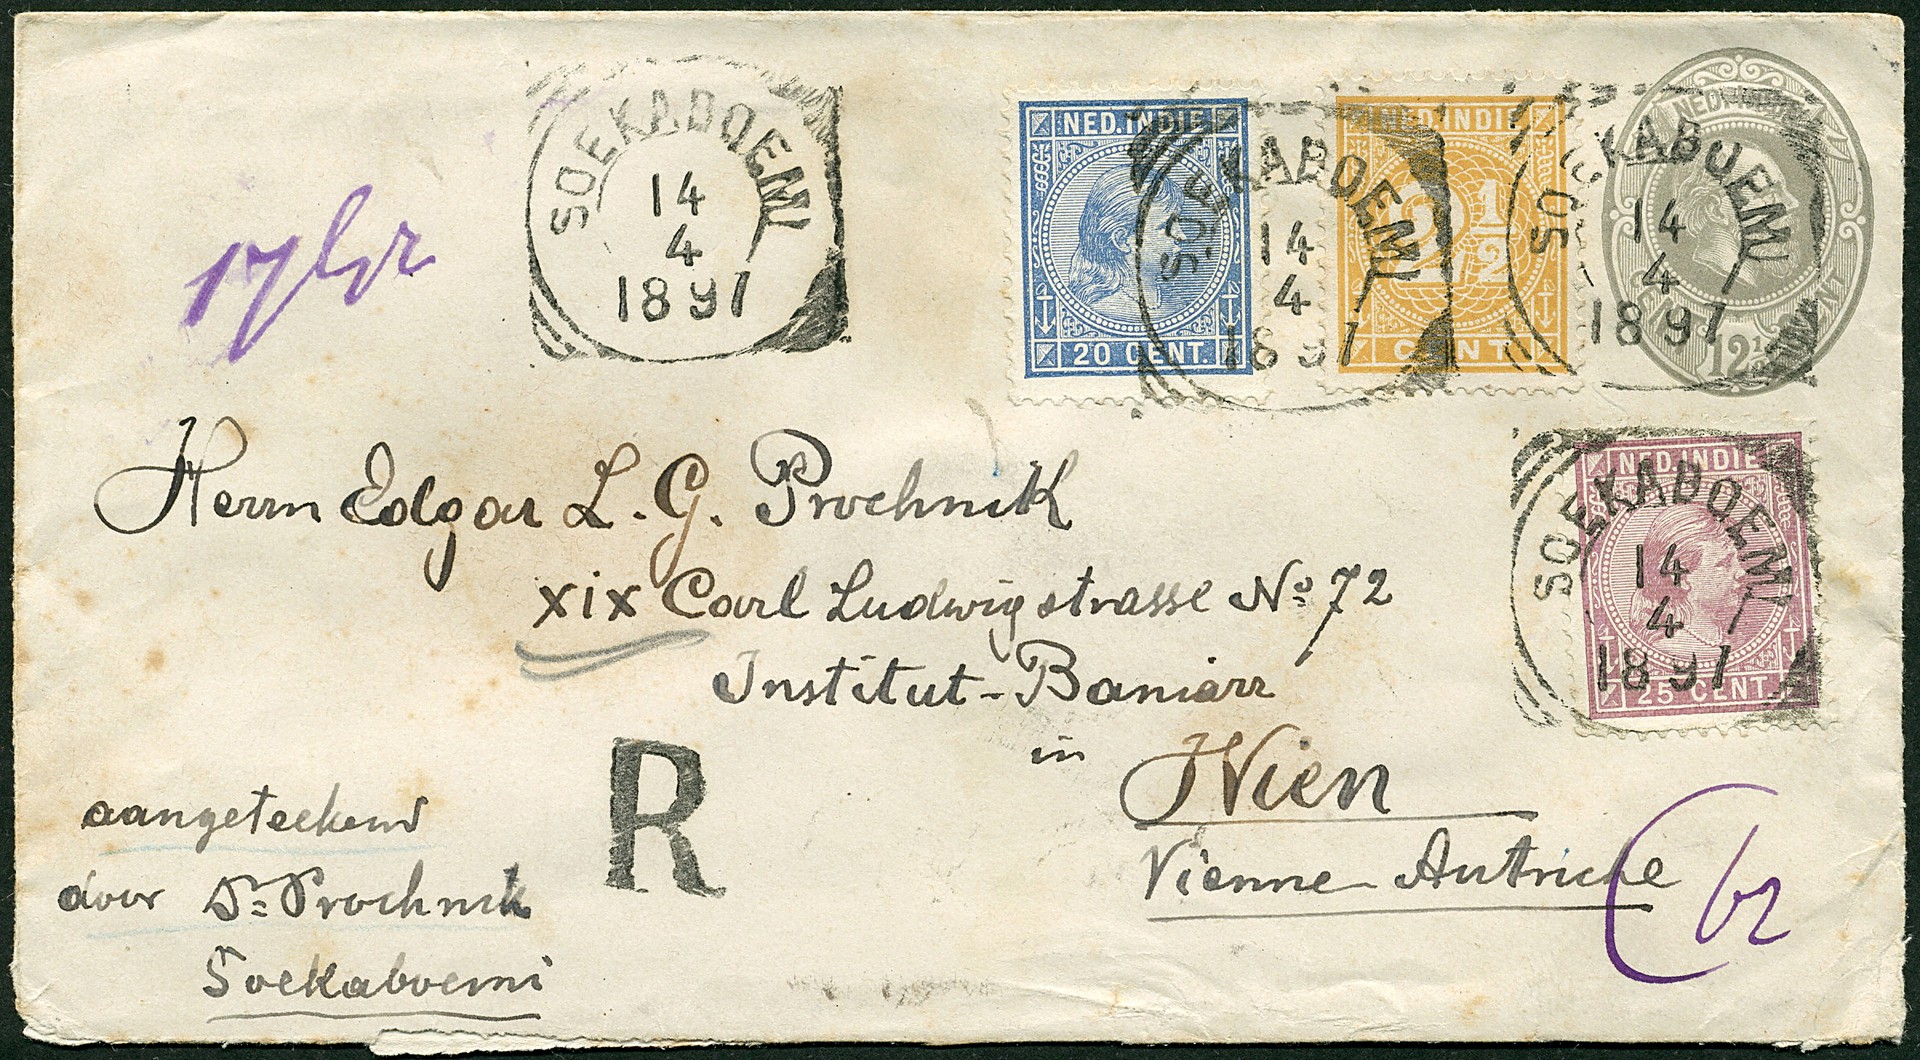 SOEKABOEMI
14
4
1897
17 gr
NED. INDIE
20 CENT.
SOEKABOEMI
14
4
1897
NED. INDIE
2 1/2
CENT
SOEKABOEMI
14
4
1897
12 1/2
NED. INDIE
25 CENT.
SOEKABOEMI
14
4
1897
Herrn Edgar L. G. Prochnik
XIX Carl Ludwigstrasse No 72
Institut-Baniarr
in
Wien
Vienne Autriche
R
aangeteekend
door Dr Prochnik
Soekaboemi